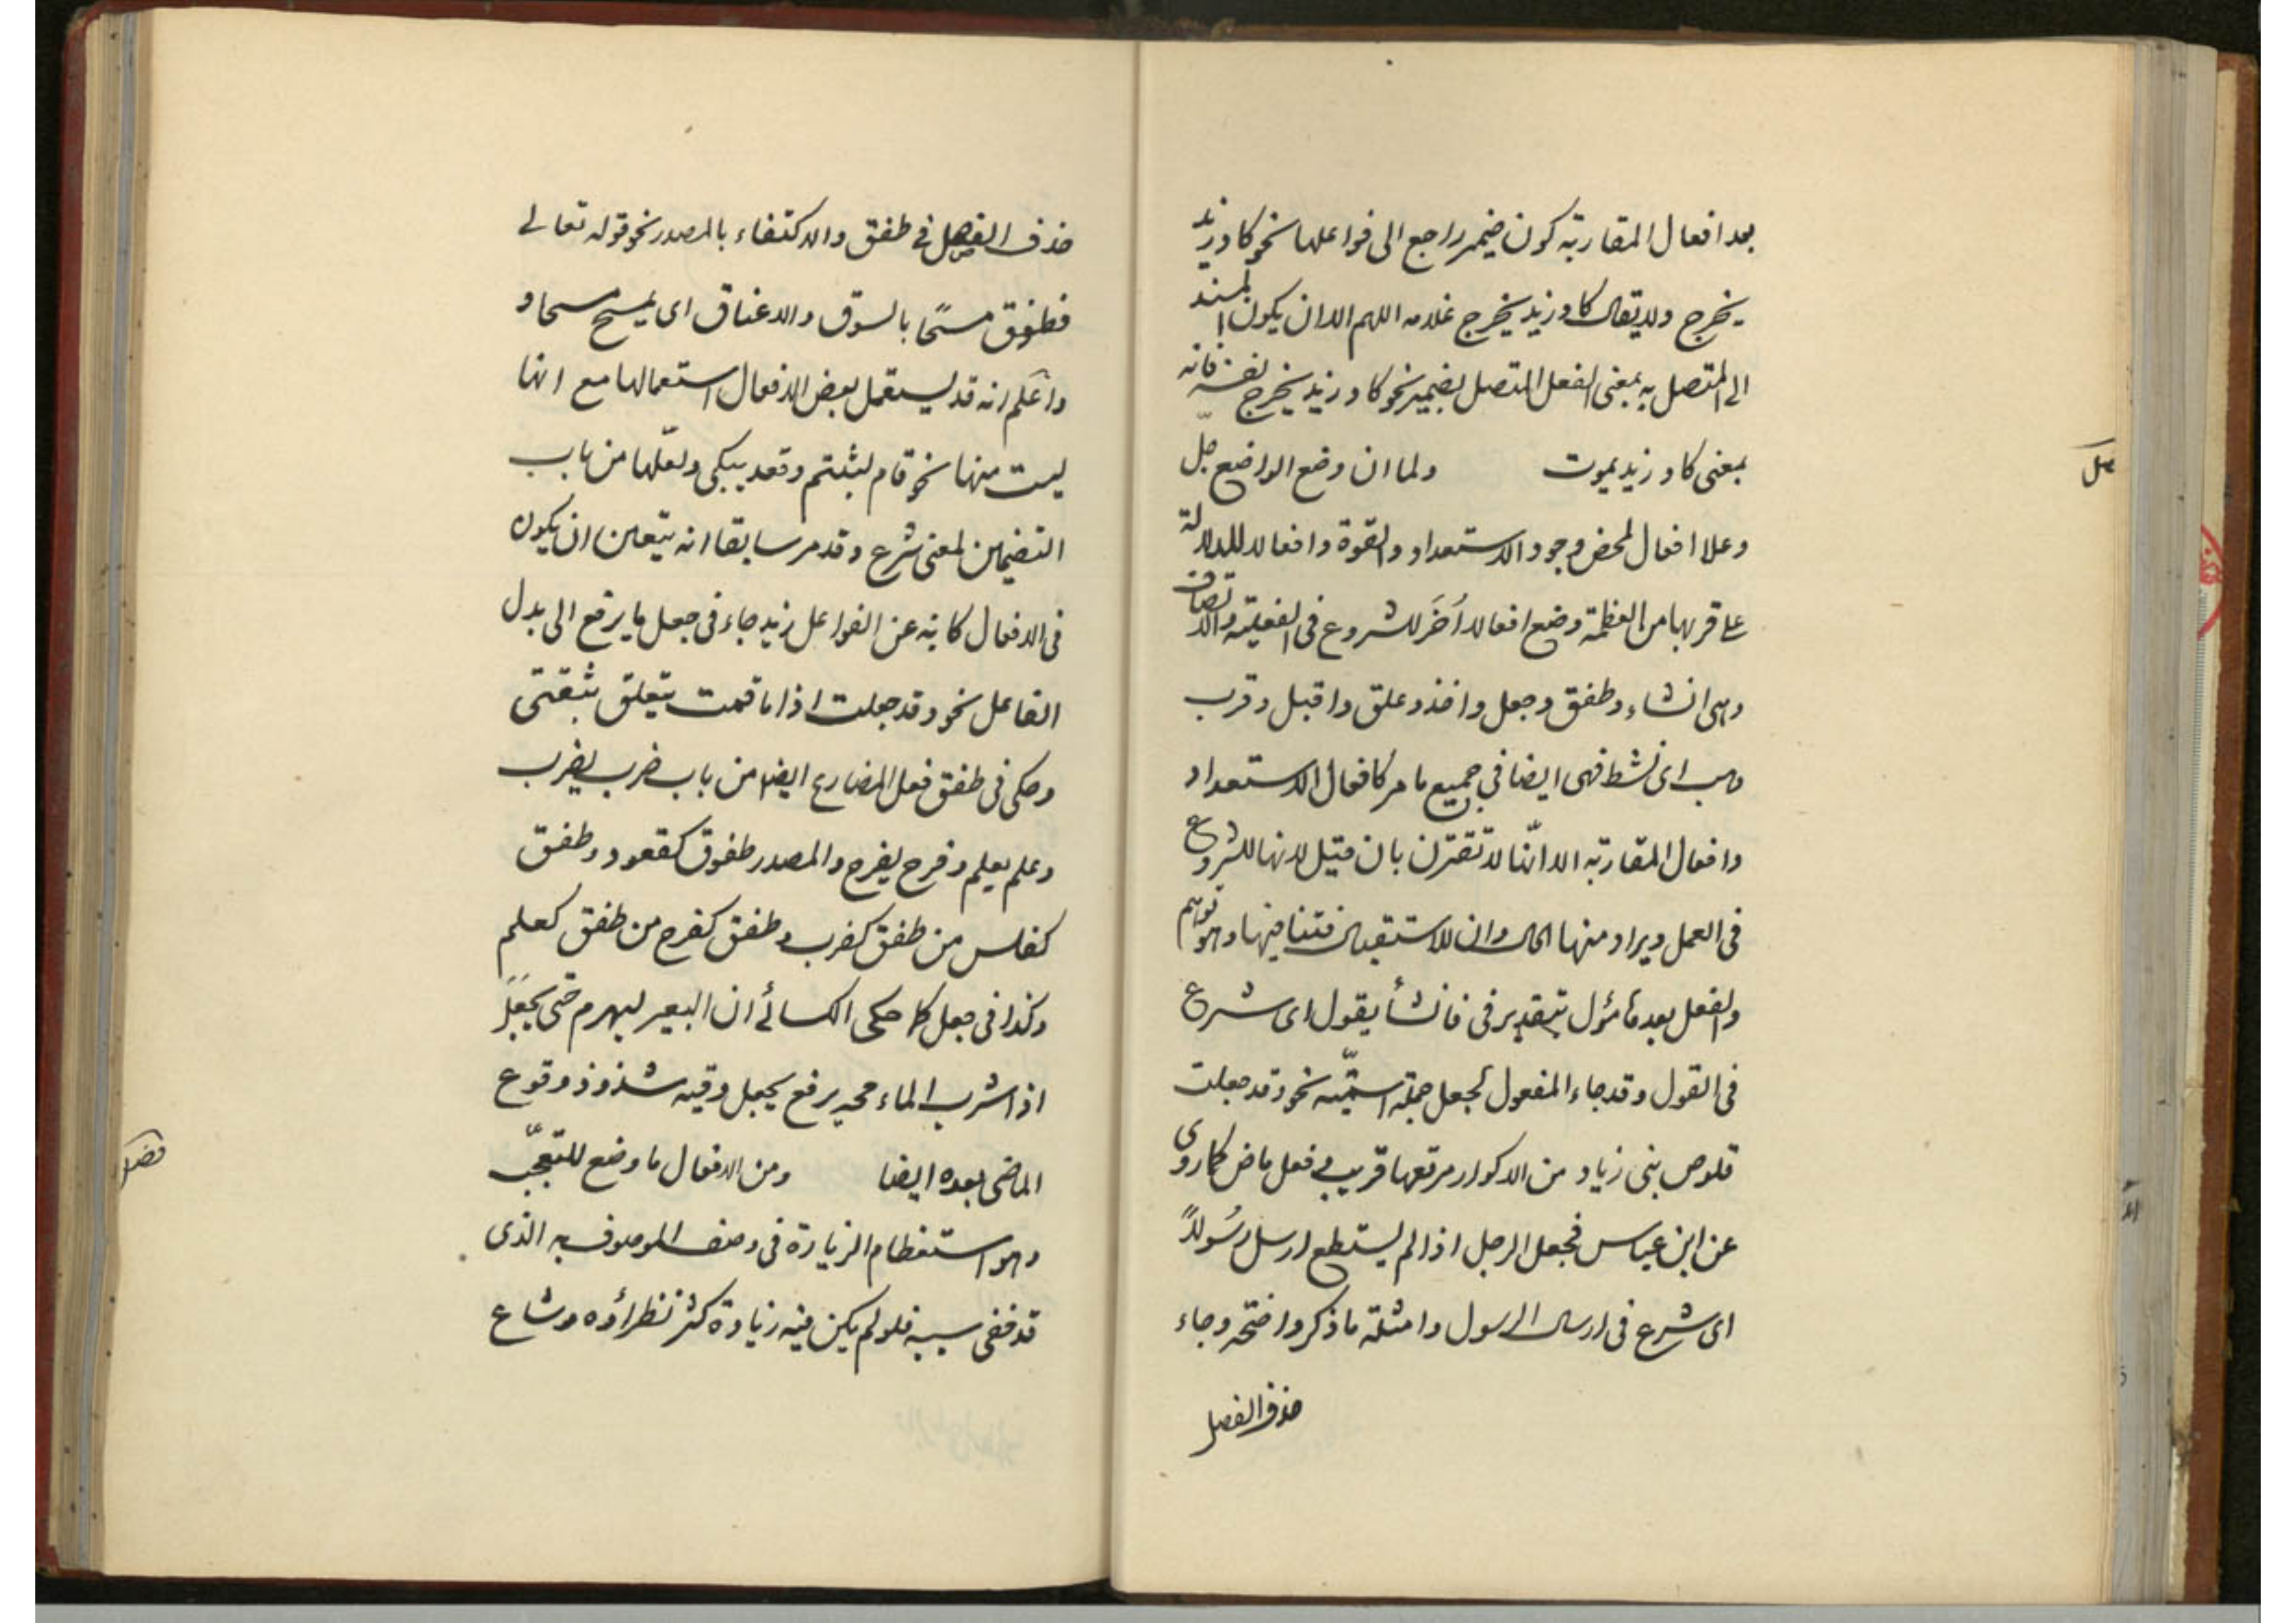 بعد افعال المقاربة كون ضمير راجع الى فواعلها نحو كاد زيد
يخرج ولا يقال كاد زيد يخرج غلامه اللهم الا ان يكون المسند
الى المتصل به بمعنى الفعل المتصل بضمير نحو كاد زيد يخرج نفسه فانه
بمعنى كاد زيد يموت ولما ان وضع الواضع جلّ
فصل
وعلا افعالا لمحض وجود الاستعداد والقوة وافعالا للدلالة
على قربها من الفعلية وضع افعالا أخَر للشروع فى الفعلية والاتصاف
وهى انشاء وطفق وجعل واخذ وعلق واقبل وقرب
وهب اى نشط فهى ايضا في جميع ما مر كافعال الاستعداد
وافعال المقاربة الا انّها لا تقترن بان قيل لانها للشروع
فى العمل ويراد منها الحال وان للاستقبال فتنافيها وهو توهم
والفعل بعده مأول بتقدير فى فانشأ يقول اى شرع
فى القول وقد جاء المفعول لجعل جملة اسميّة نحو وقد جعلت
قلوص بنى زياد من الاكوار مرتعها قريب وفعل ماض كما روى
عن ابن عباس فجعل الرجل اذا لم يستطع ارسل رسُولاً
اى شرع فى ارسال الرسول وامثلة ما ذكر واضحة وجاء
حذف الفصل
حذف الفعل فى طفق والاكتفاء بالمصدر نحو قوله تعالى
فطفق مسحًا بالسوق والاعناق اى يمسح مسحا و
واعلم انه قد يستعمل بعض الافعال استعمالها مع انها
ليست منها نحو قام يشتم وقعد يبكى ولعلّها من باب
التضمين لمعنى شرع وقد مر سابقا انه يتعين ان يكون
فى الافعال كانه عن الفواعل زيد جاء فى جعل ما يرفع الى بدل
الفاعل نحو وقد جعلت اذا ما قمت يتعلق بثقتى
وحكى فى طفق فعل المضارع ايضا من باب ضرب يضرب
وعلم يعلم وفرح يفرح والمصدر طفوق كقعود وطفق
كفلس من طفق كضرب وطفق كفرح من طفق كعلم
وكذا فى جعل كما حكى الكسائى ان البعير ليهرم حتى يجعَلَ
اذا شرب الماء مجه برفع يجعل وفيه شذوذ وقوع
الماضى بعده ايضا ومن الافعال ما وضع للتعجّب
فصل
وهو استعظام الزيادة فى وصف الموصوف به الذى
قد خفى سببه فلو لم يكن فيه زيادة كثر نظراؤه وشاع